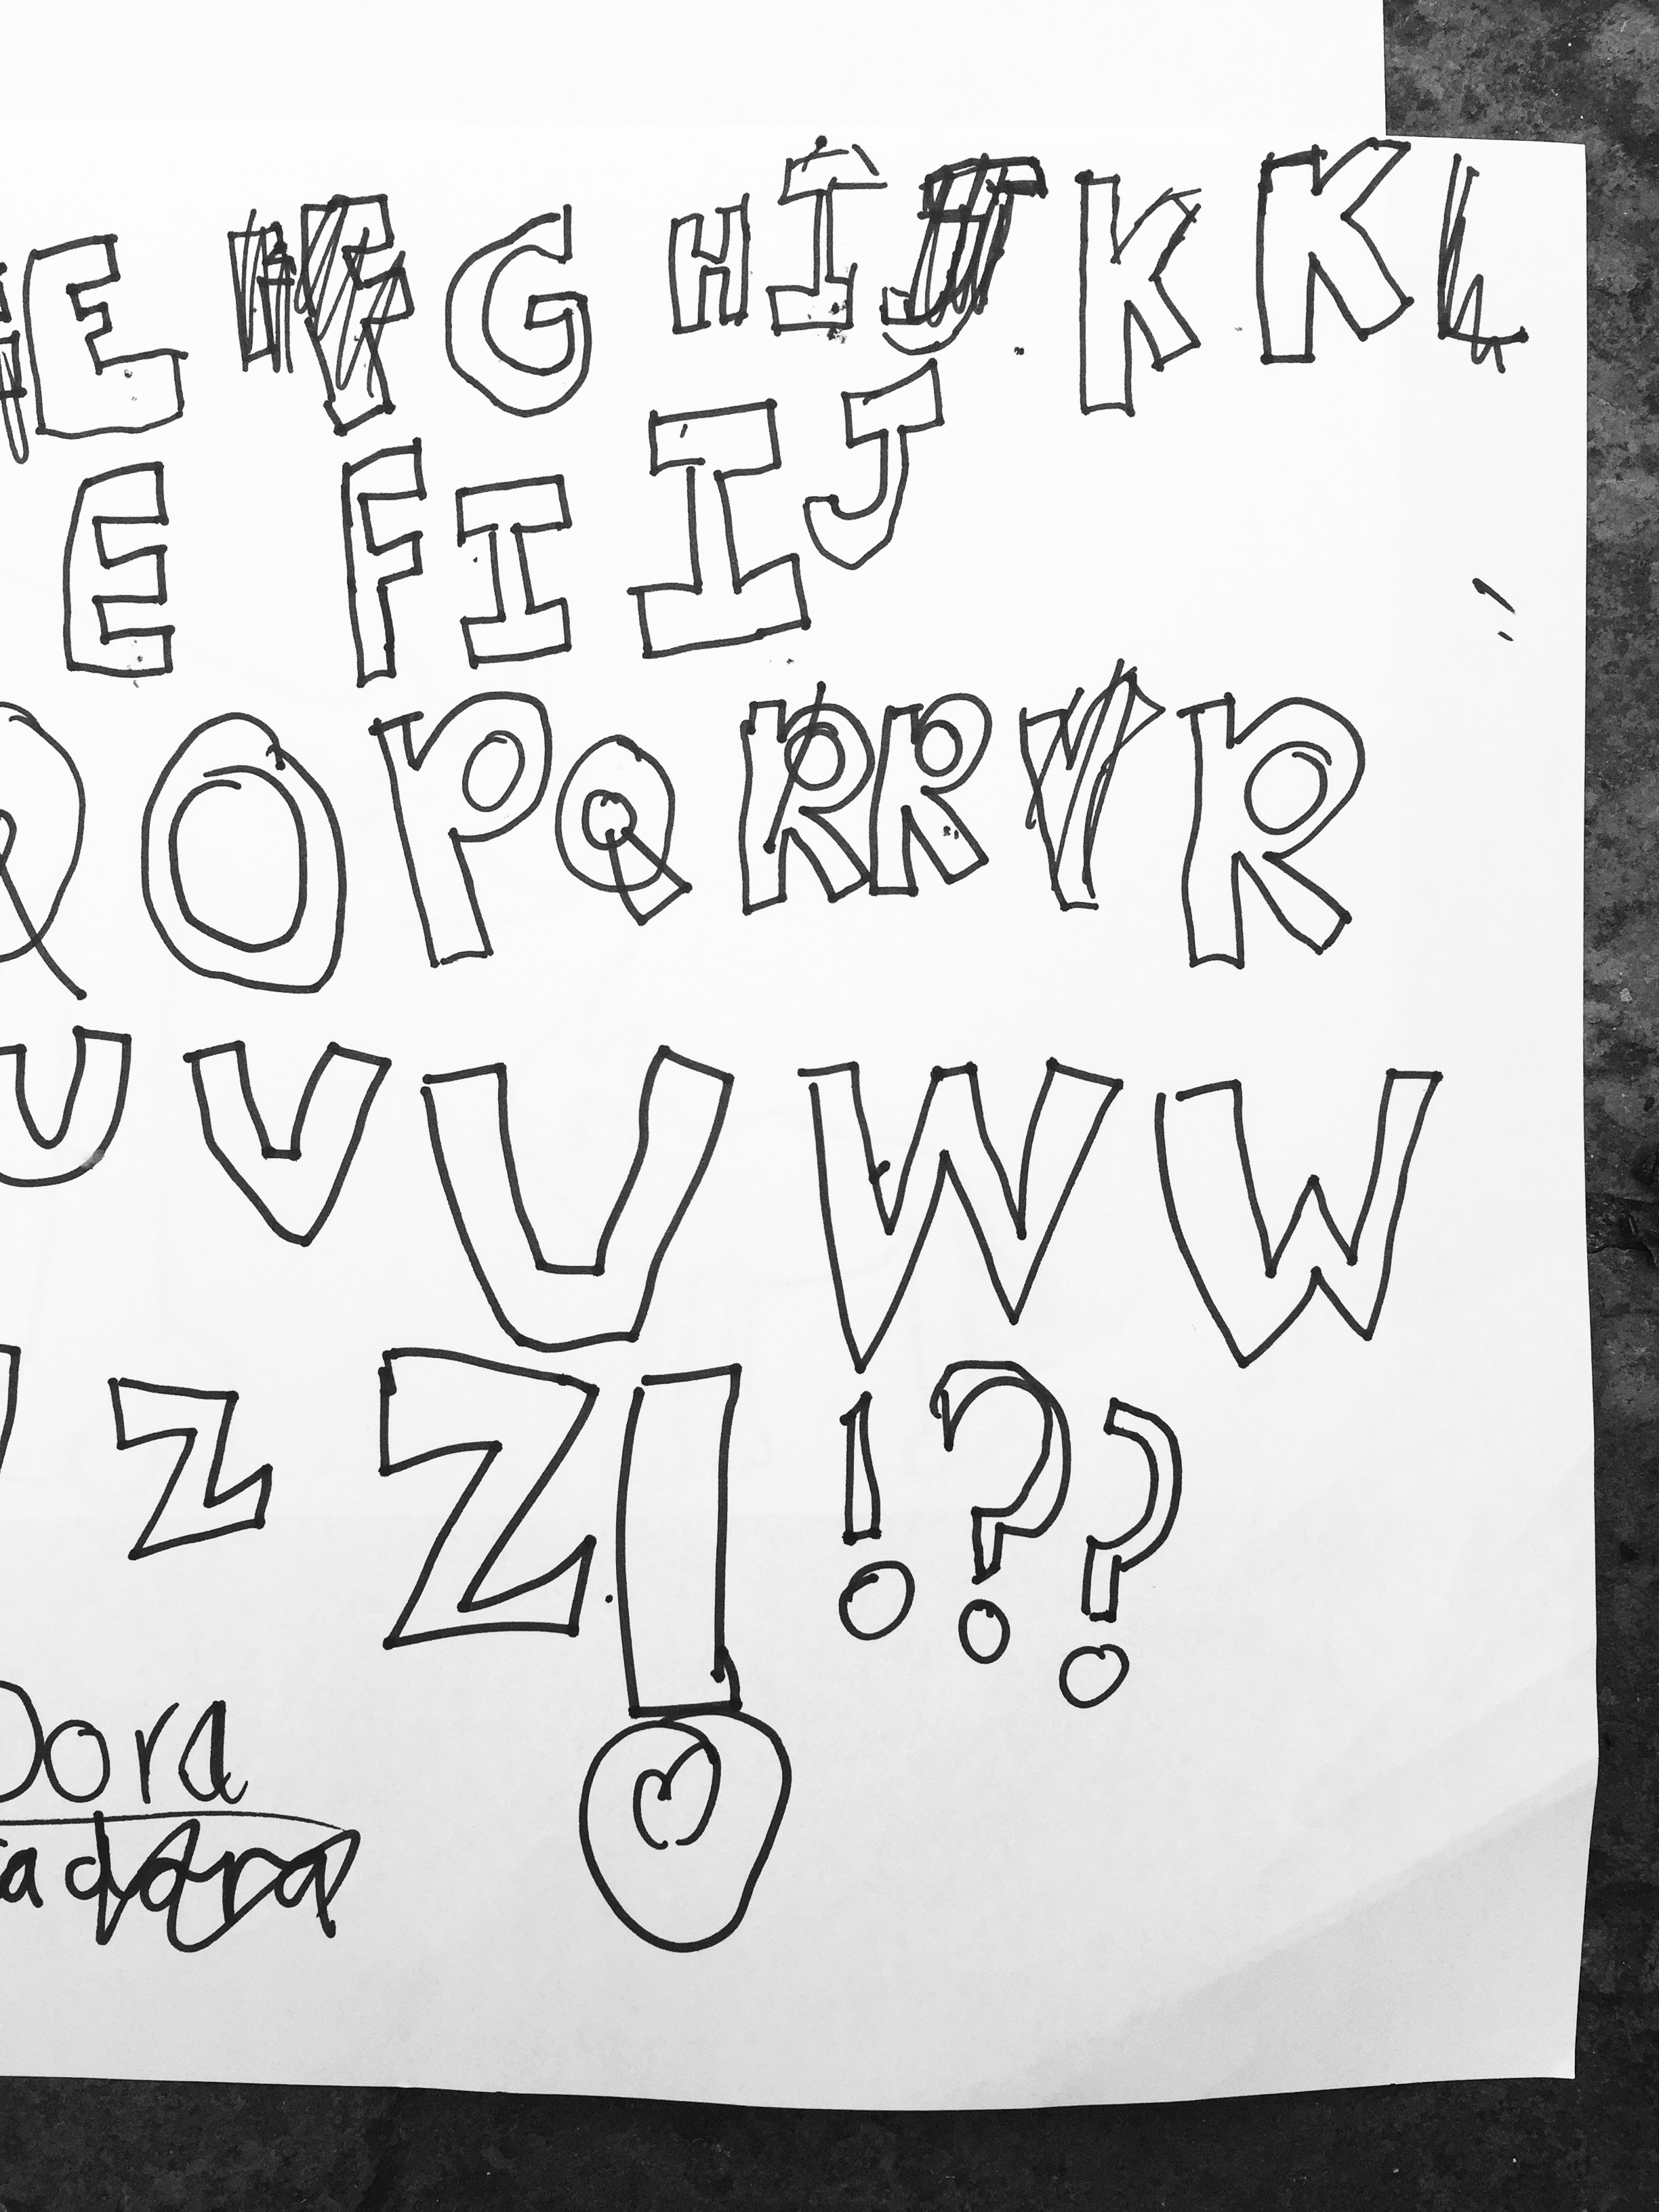 E G H I K K
E F I I J
Q O P Q R R R
U V U W W
Z Z ! ! ? ?
Dora